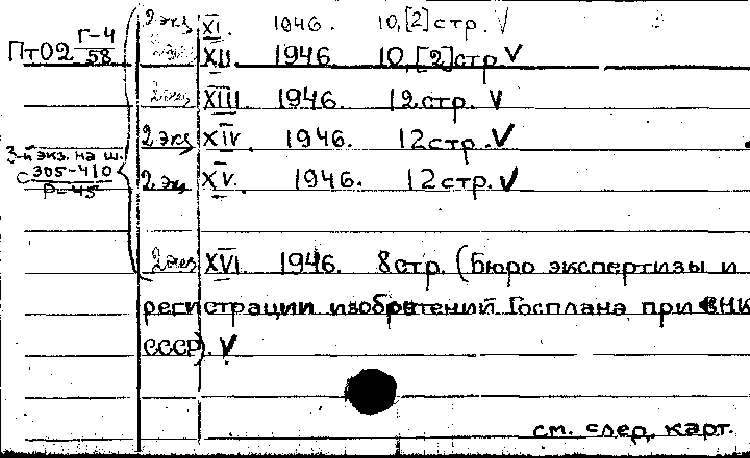 2 экз XI. 1946. 10,[2] стр. V
Пт02 Г-4/58 2 экз XII. 1946. 10,[2] стр V
2 экз XIII 1946. 12 стр. V
2 экз XIV. 1946. 12 стр. V
3-й экз. на ш.
С 305-410/Р-45 2 эк XV. 1946. 12 стр. V
2 экз XVI. 1946. 8 стр. (Бюро экспертизы и
регистрации изобретений Госплана при СНК
СССР). V
см. след. карт.